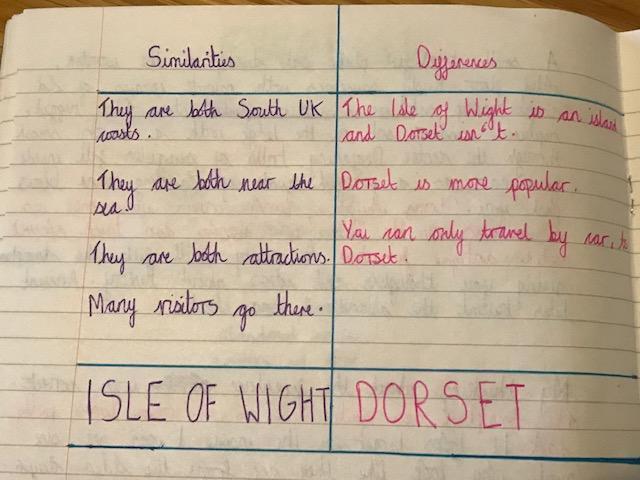 Similarities
They are both South UK
coasts.
They are both near the
sea.
They are both attractions.
Many visitors go there.
Differences
The Isle of Wight is an island
and Dorset isn't.
Dorset is more popular.
You can only travel by car, to
Dorset.
ISLE OF WIGHT
DORSET